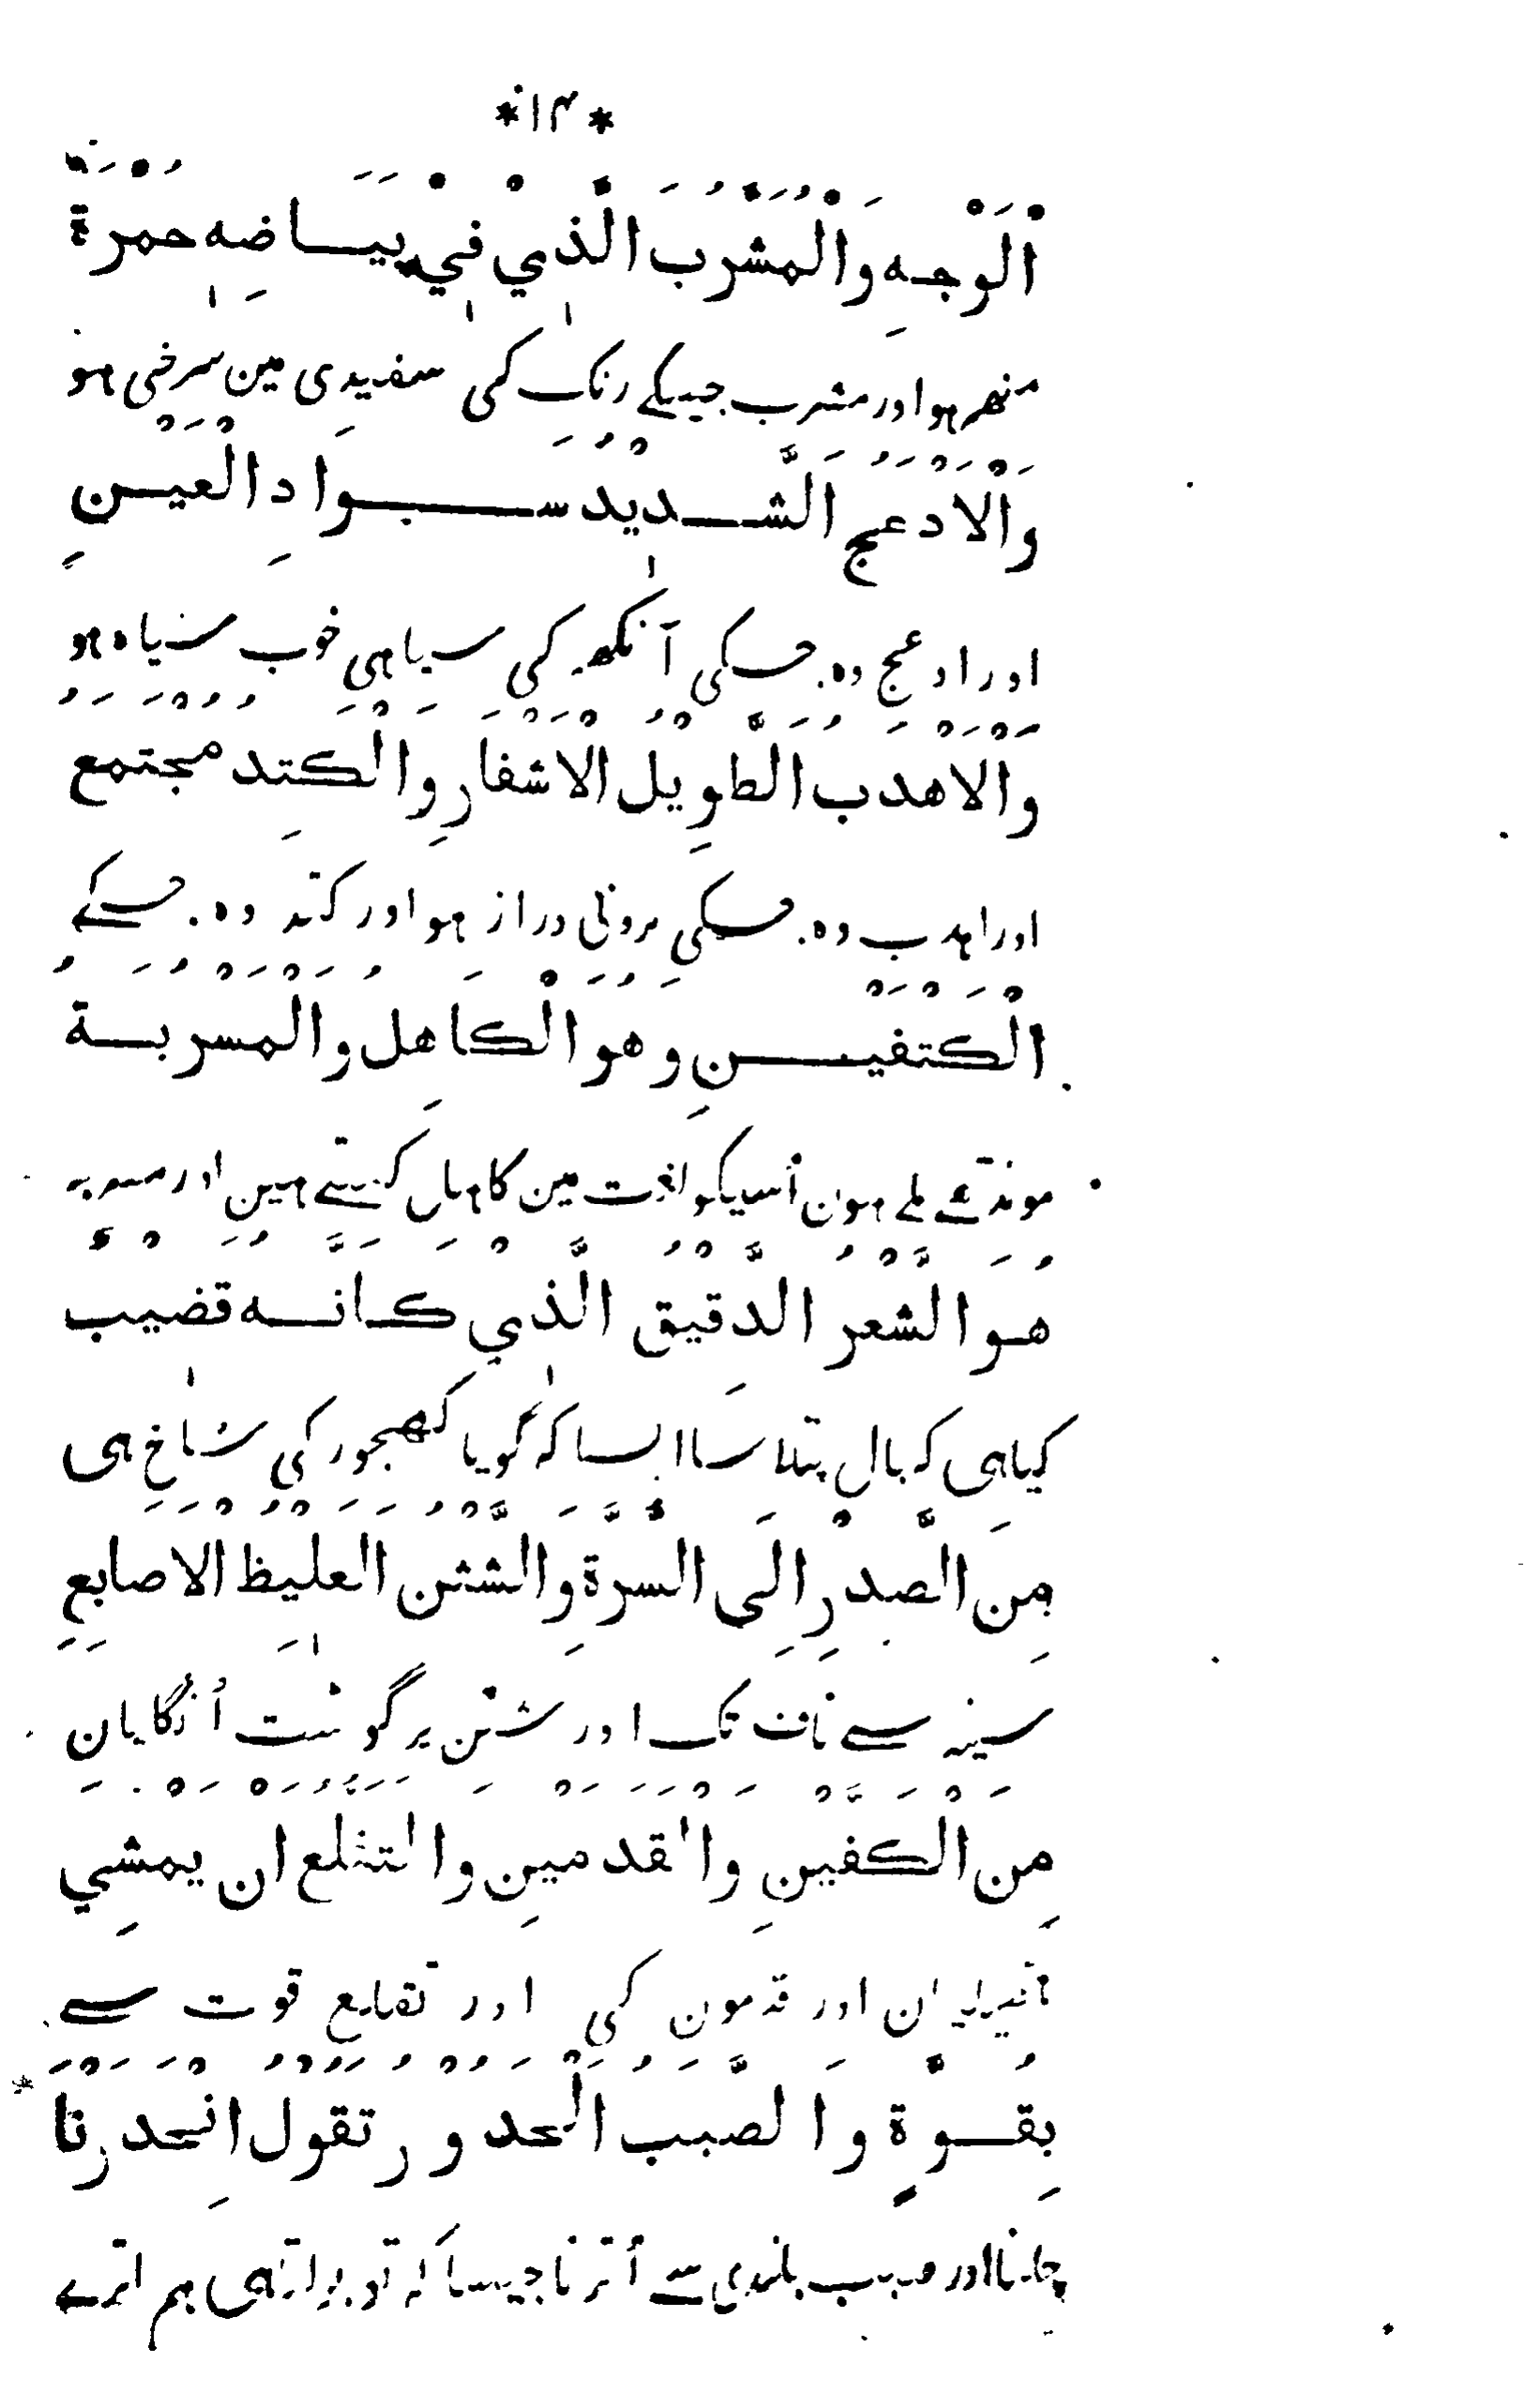 *۱۴*
اَلْوَجْهِ وَالْمُشْرَبُ الَّذِيْ فِيْ بَيَاضِهٖ حُمْرَةٌ
منھ ہو اور مشرب جسکے رنگ کی سفیدی مین سرخی ہو
وَالْاَدْعَجُ الشَّدِيْدُ سَوَادِ الْعَيْنِ
اور ادعج وہ جسکی آنکھ کی سیاہی خوب سیاہ ہو
وَالْاَهْدَبُ الطَّوِيْلُ الْاَشْفَارِ وَالْكَتِدُ مُجْتَمَعُ
اور اہدب وہ جسکی برونی دراز ہو اور کتد وہ جسکے
الْكَتِفَيْنِ وَهُوَ الْكَاهِلُ وَالْمَسْرُبَةُ
مونڈھے ملے ہون اُسیکو لغت مین کاہل کہتے ہین اور مسربہ
هُوَ الشَّعْرُ الدَّقِيْقُ الَّذِيْ كَاَنَّهٗ قَضِيْبٌ
کیاہی کہ بال پتلا سا ایسا کہ گویا کھجور کی شاخ ہی
مِنَ الصَّدْرِ اِلَى السُّرَّةِ وَالشَّثْنُ الْغَلِيْظُ الْاَصَابِعِ
سینہ سے ناف تک اور شثن پر گوشت اُنگلیان
مِنَ الْكَفَّيْنِ وَالْقَدَمَيْنِ وَالتَّقَلُّعُ اَنْ يَمْشِيَ
ہتیلیان اور قدمون کی اور تقلع قوت سے
بِقُوَّةٍ وَالصَّبَبُ الْحُدُوْرُ تَقُوْلُ انْحَدَرْنَا
چلنا اور صبب بلندی سے اُترنا جیسا کہ تو بولتاہی ہم اترے